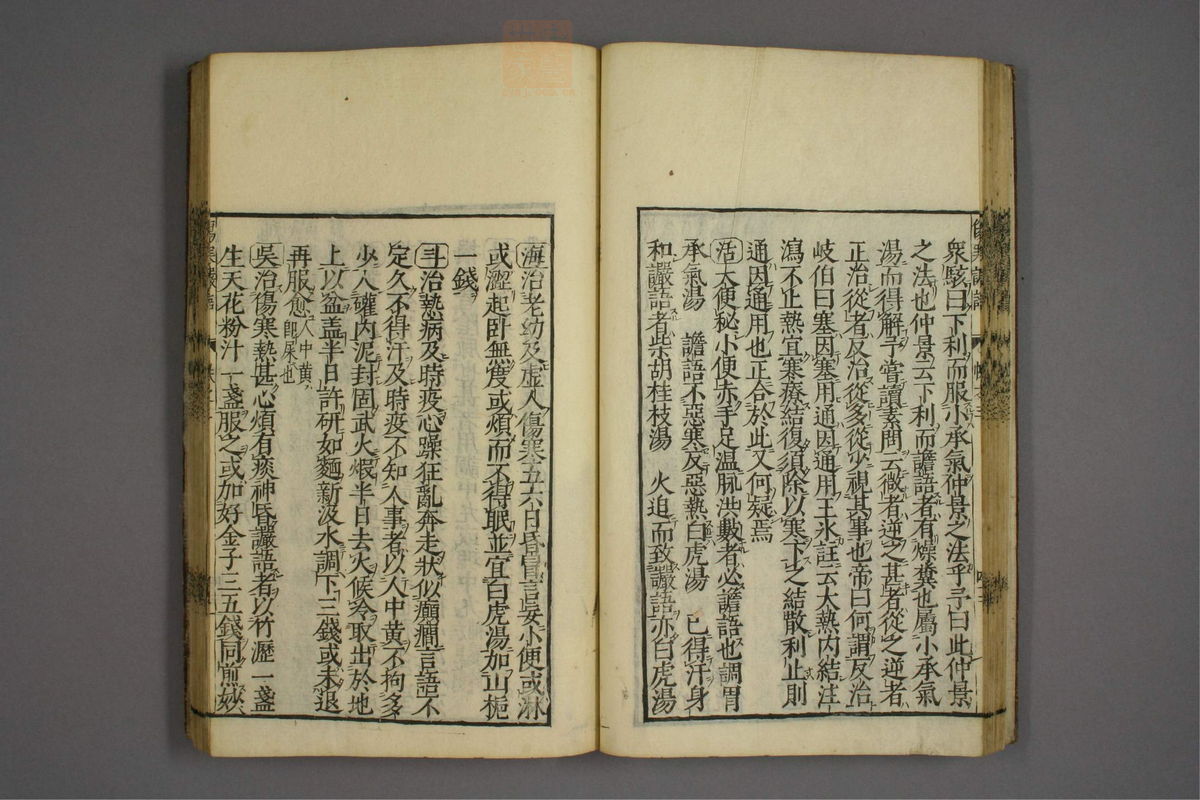 衆駭曰下利而服小承氣仲景之法乎予曰此仲景
之法也仲景云下利而譫語者有燥糞也屬小承氣
湯而得解予嘗讀素問云微者逆之甚者從之逆者
正治從者反治從多從少視其事也帝曰何謂反治
岐伯曰塞因塞用通因通用王氷註云大熱内結注
瀉不止熱宜寒療結復須除以寒下之結散利止則
通因通用也正合於此又何疑焉
活大便秘小便赤手足温脉洪數者必譫語也調胃
承氣湯　譫語不惡寒反惡熱白虎湯　已得汗身
和讝語者柴胡桂枝湯　火迫而致讝語亦白虎湯
海治老幼及虚人傷寒五六日昏冒言妄小便或淋
或澀起卧無度或煩而不得眠並宜白虎湯加山梔
一錢
斗治熱病及時疫心躁狂亂奔走狀似癲癎言語不
定久不得汗及時疫不知人事者以人中黄不拘多
少入罐内泥封固武火煆半日去火候冷取出於地
上以盆盖半日許研如麵新汲水調下三錢或未退
再服愈人中黄即屎也
吳治傷寒熱甚心煩有痰神昏讝語者以竹瀝一盞
生天花粉汁一盞服之或加好金子三五錢同煎妙